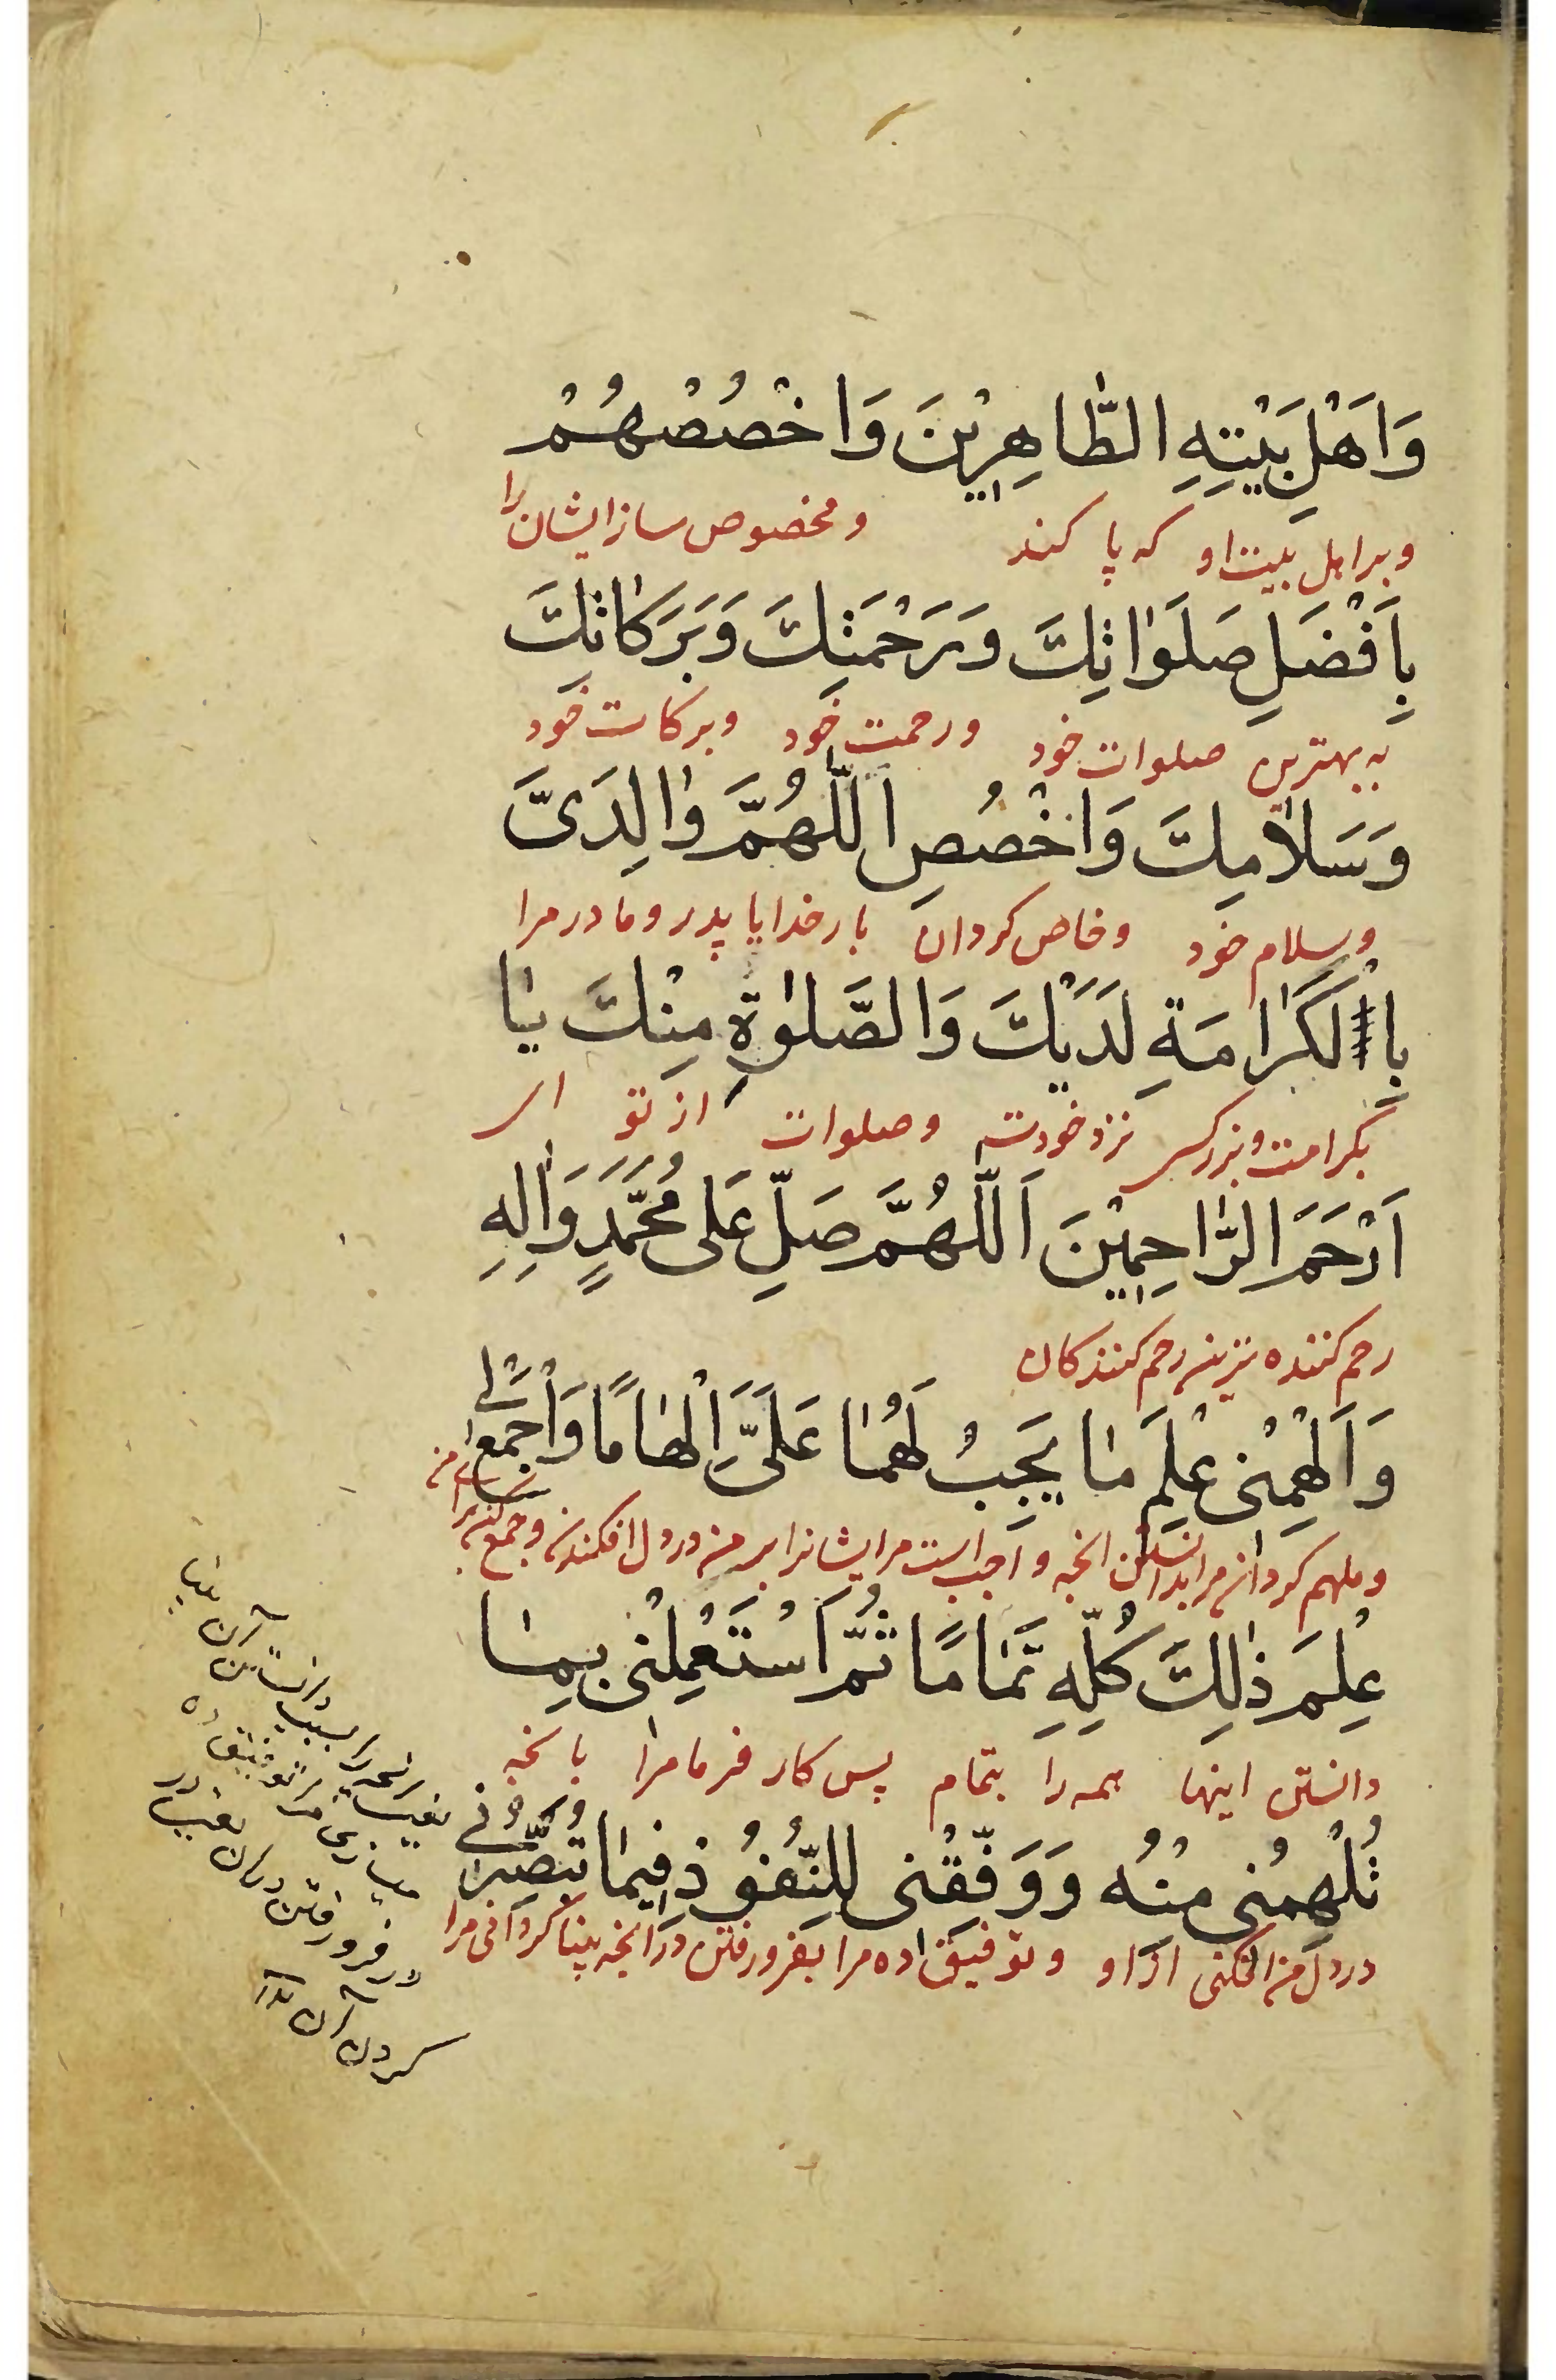 وَاَهْلِ بَيْتِهِ الطَّاهِرِيْنَ وَاخْصُصْهُمْ
وبر اہل بیت او که پا کند ومخصوص ساز ایشان را
بِاَفْضَلِ صَلَوٰاتِكَ وَرَحْمَتِكَ وَبَرَكٰاتِكَ
به بهترین صلوات خود ورحمت خود وبرکات خود
وَسَلٰامِكَ وَاخْصُصِ اللّٰهُمَّ وٰالِدَىَّ
وسلام خود وخاص کردان بار خدایا پدر ومادر مرا
بِالْكَرٰامَةِ لَدَيْكَ وَالصَّلوٰةِ مِنْكَ يٰا
بکرامت وبزرکی نزد خودت وصلوات از تو ای
اَرْحَمَ الرّٰاحِمِيْنَ اَللّٰهُمَّ صَلِّ عَلى مُحَمَّدٍ وَاٰلِهِ
رحم کننده ترین رحم کنندکان
وَاَلْهِمْنى عِلْمَ مٰا يَجِبُ لَهُمٰا عَلَىَّ اِلْهٰامًا وَاجْمَعْ لٖى
وملهم کردان مرا بدانستن انچه واجب است مرایشانرا بر من در دل افکندنی وجمع کن برای من
عِلْمَ ذٰلِكَ كُلِّهِ تَمٰامًا ثُمَّ اسْتَعْمِلْنى بِمٰا
دانستن اینها همه را بتمام پس کار فرما مرا بانچه
تُلْهِمُنى مِنْهُ وَوَفِّقْنى لِلنُّفُوْذِ فيمٰا تُبَصِّرُنٖى
در دل من افکنی از او وتوفیق ده مرا بفرورفتن در انچه بینا کردانی مرا
بسبب دانستن آن
مرا توفیق ده
در فرو رفتن در آن
کردن آن